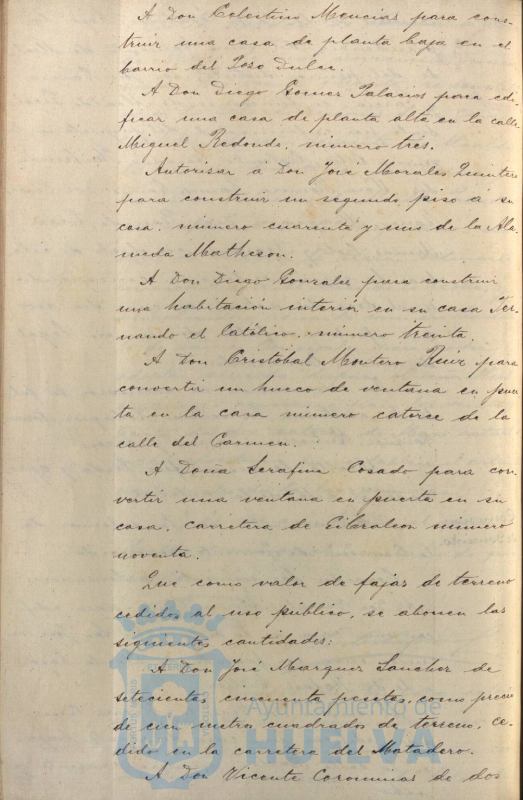 A Don Celestino Mencias para cons-
truir una casa de planta baja en el
barrio del Poso Dulce.
A Don Diego Gomez Palacios para edi-
ficar una casa de planta alta en la calle
Miguel Redondo, número tres.
Autorisar á Don José Morales Quintero
para construir un segundo piso á su
casa, número cuarenta y uno de la Ala-
meda Matheson.
A Don Diego Gonzalez para construir
una habitación interior en su casa Fer-
nando el Católico, número treinta.
A Don Cristóbal Montero Ruiz para
convertir un hueco de ventana en puer-
ta en la casa número catorce de la
calle del Carmen.
A Doña Serafina Cosado para con-
vertir una ventana en puerta en su
casa, carretera de Gibraleon número
noventa.
Que como valor de fajas de terreno
cedidos al uso público, se abonen las
siguientes cantidades:
A Don José Marquez Sanchez de
setecientas cincuenta pesetas, como precio
de cien metros cuadrados de terreno, ce-
dido en la carretera del Matadero.
A Don Vicente Corominas de dos
Ayuntamiento de
HUELVA